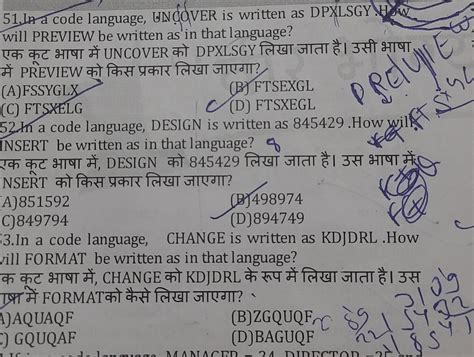 51.In a code language, UNCOVER is written as DPXLSGY .How
will PREVIEW be written as in that language?
एक कूट भाषा में UNCOVER को DPXLSGY लिखा जाता है। उसी भाषा
में PREVIEW को किस प्रकार लिखा जाएगा?
(A)FSSYGLX (B) FTSEXGL
(C) FTSXELG (D) FTSXEGL
52.In a code language, DESIGN is written as 845429 .How will
INSERT be written as in that language? 8
एक कूट भाषा में, DESIGN को 845429 लिखा जाता है। उस भाषा में
NSERT को किस प्रकार लिखा जाएगा?
A)851592 (B)498974
C)849794 (D)894749
3.In a code language, CHANGE is written as KDJDRL .How
will FORMAT be written as in that language?
क कूट भाषा में, CHANGE को KDJDRL के रूप में लिखा जाता है। उस
भाषा में FORMATको कैसे लिखा जाएगा?
A)AQUAQF (B)ZGQUQF
) GQUQAF (D)BAGUQF
MANAGER = 24, DIRECTOR = 25 and